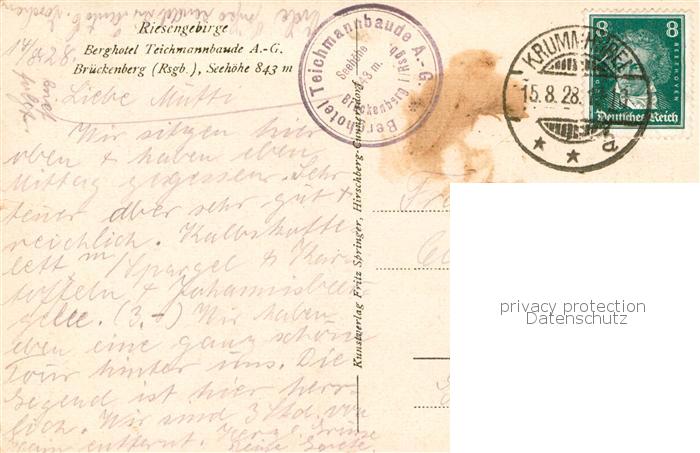 Riesengebirge
Berghotel Teichmannbaude A.-G.
Brückenberg (Rsgb.), Seehöhe 843 m
14/8 28.
Liebe Mutti
Wir sitzen hier
oben & haben eben
Mittag gegessen. Sehr
teuer aber sehr gut &
reichlich. Kalbskotte
lett m/Spargel & Kar
toffeln & Johannisbeer
gelee. (3.-) Wir haben
eben eine ganz schöne
Tour hinter uns. Die
Gegend ist hier herr
lich. Wir sind 3 Std. von
entfernt. Herzl. Grüsse
Deine
Berghotel Teichmannbaude A.-G.
Seehöhe
843 m.
Brückenberg i/Rsgb.
Kunstverlag Fritz Springer, Hirschberg-Cunnersdorf
KRUMMHÜBEL
15.8.28.
8 8
BEETHOVEN
Deutsches Reich
privacy protection
Datenschutz